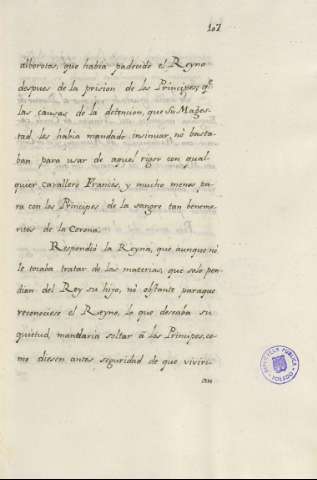 107
alborotos, que había padecido el Reyno
despues de la prision de los Principes; q.^e
las causas de la detencion, que Su Mages-
tad les habia mandado insinuar, nò basta-
ban para usar de aquel rigor con qual-
quier cavallero Francès, y mucho menos pa-
ra con los Principes de la sangre tan beneme-
ritos de la Corona.
Respondiò la Reyna, que aunque nò
le tocaba tratar de las materias, que solo pen-
dian del Rey su hijo, nò obstante paraque
reconociese el Reyno, lo que deseaba su
quietud, mandaria soltar à los Principes, co-
mo diesen antes seguridad de que vivirí-
an
BIBLIOTECA PUBLICA
TOLEDO